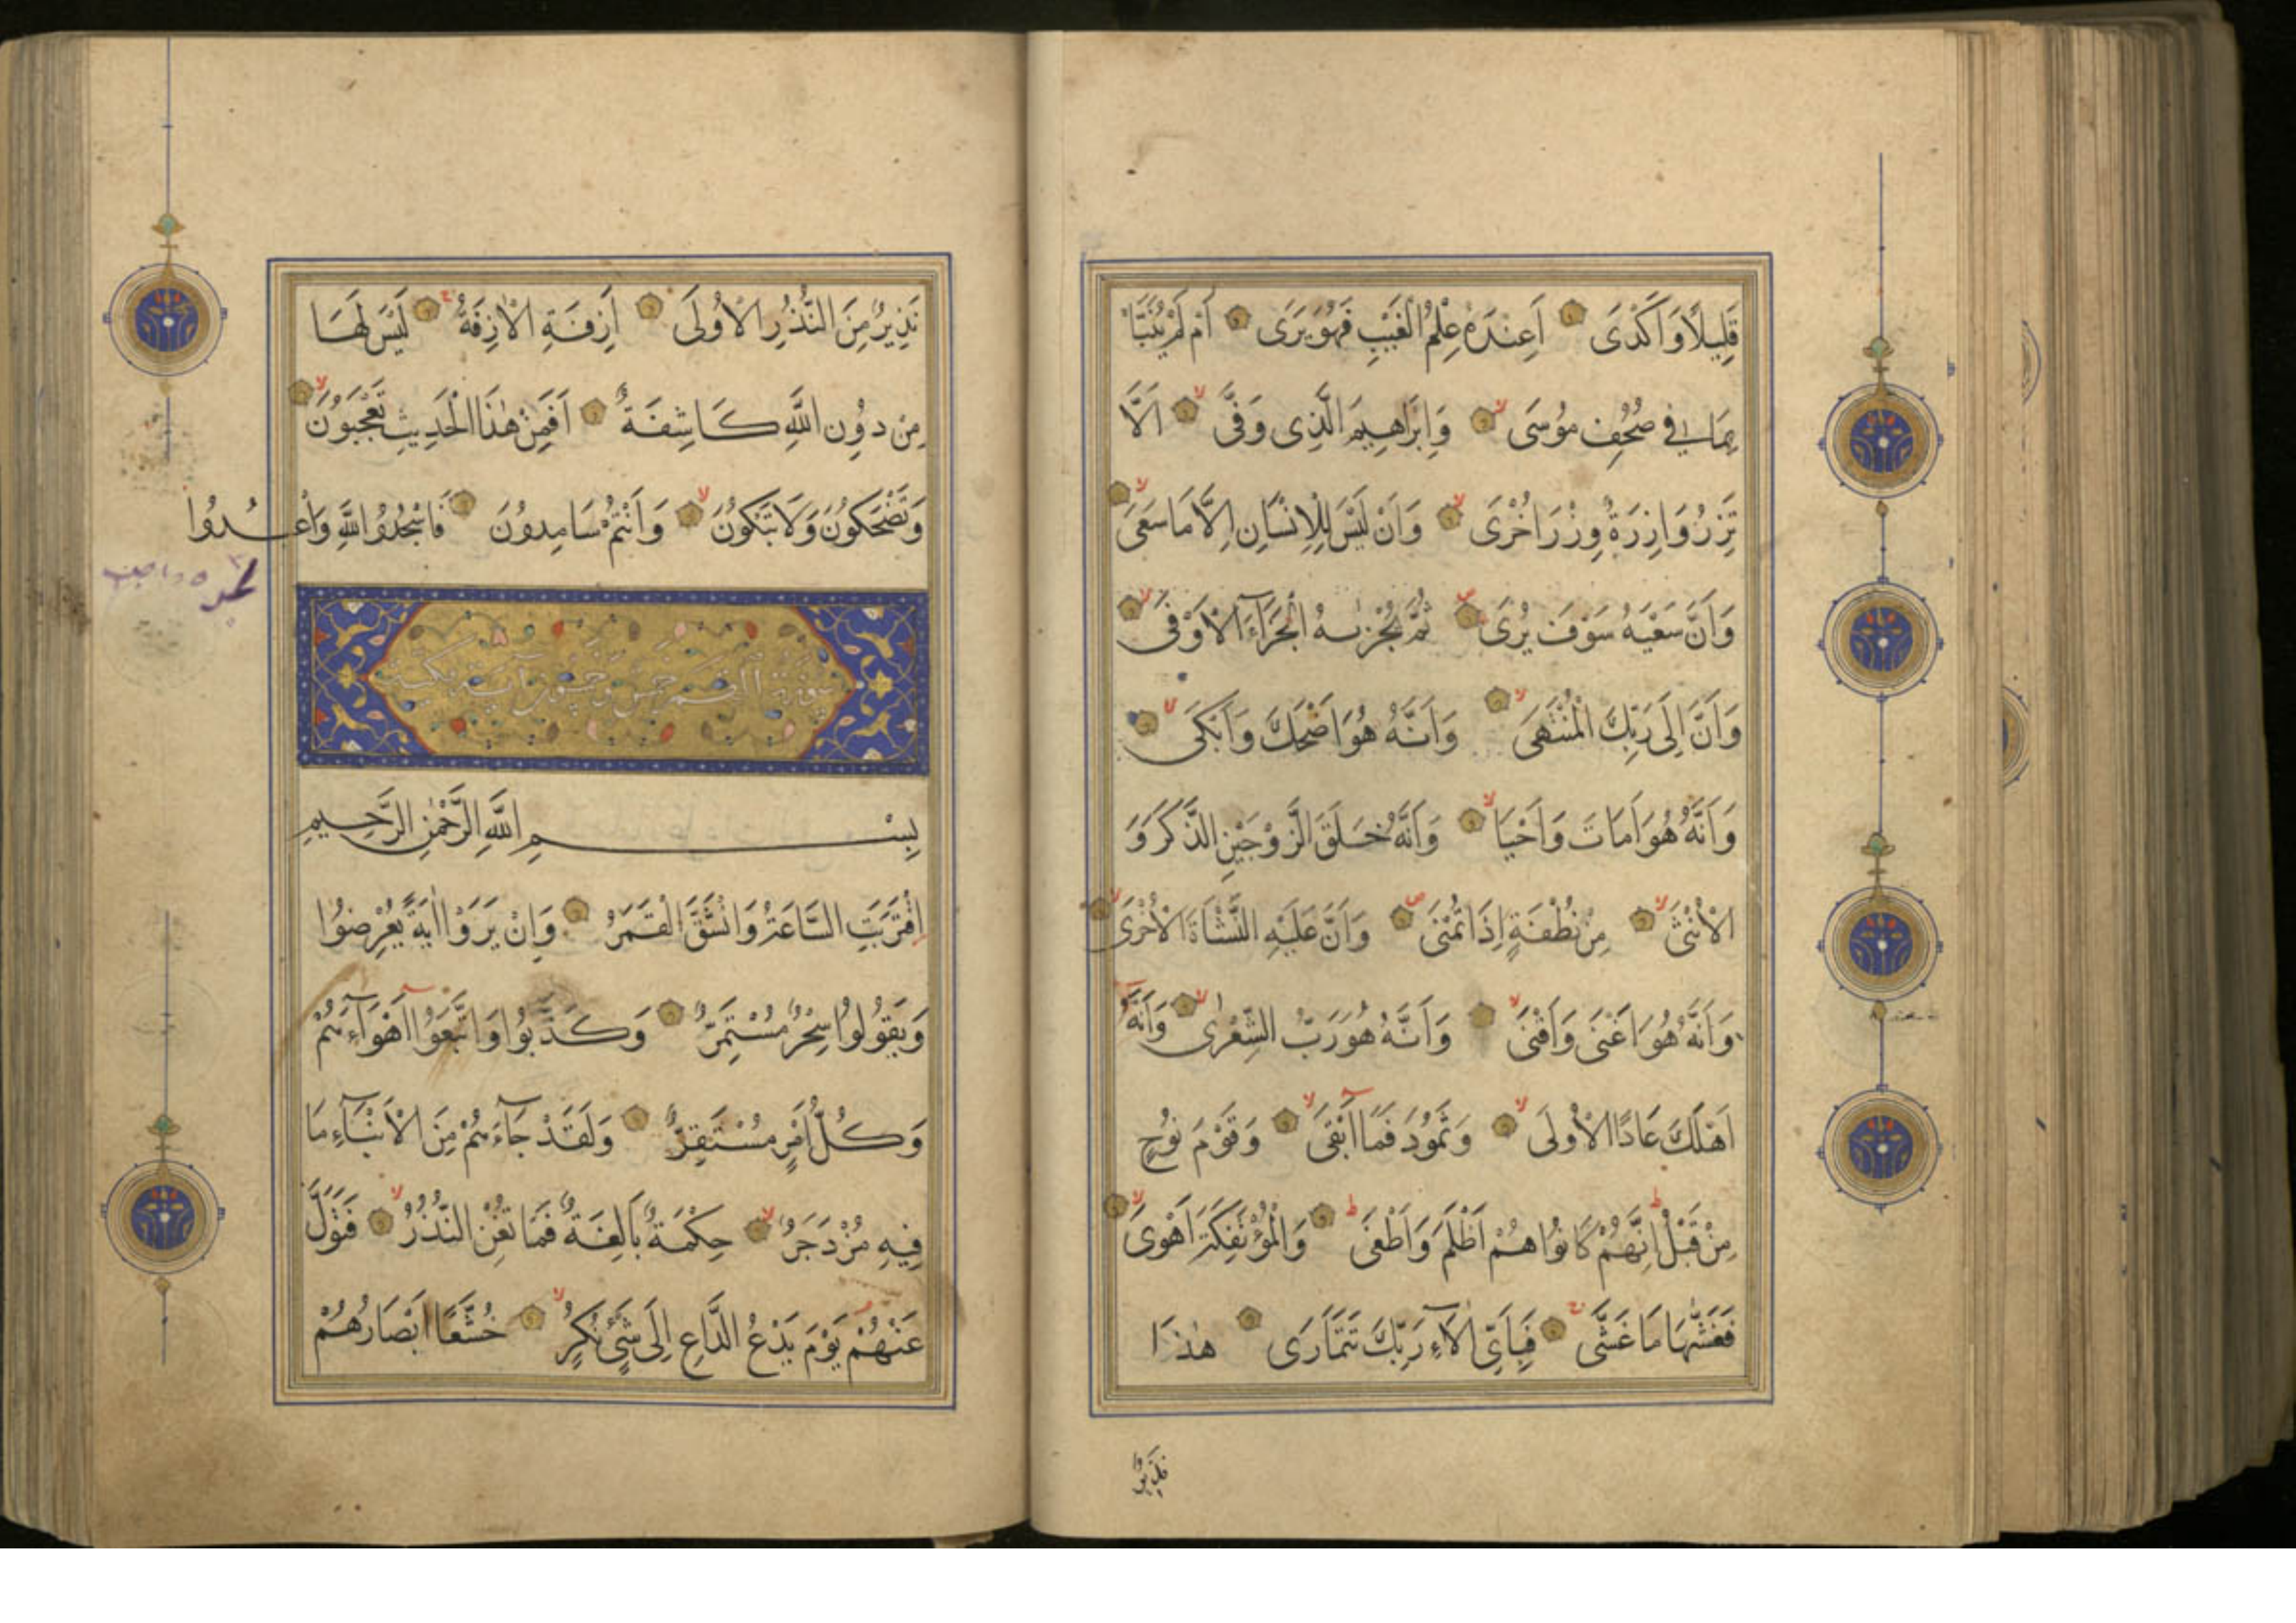 قَلِيلًا وَاَكْدٰى اَعِنْدَهُ عِلْمُ الْغَيْبِ فَهُوَ يَرَى اَمْ لَمْ يُنَبَّأْ
بِمَا فِى صُحُفِ مُوسَى وَاِبْرَاهِيمَ الَّذِى وَفَّى اَلَّا
تَزِرُ وَازِرَةٌ وِزْرَ اُخْرَى وَاَنْ لَيْسَ لِلْاِنْسَانِ اِلَّا مَا سَعَى
وَاَنَّ سَعْيَهُ سَوْفَ يُرَى ثُمَّ يُجْزٰيهُ الْجَزَٓاءَ الْاَوْفَى
وَاَنَّ اِلَى رَبِّكَ الْمُنْتَهَى وَاَنَّهُ هُوَ اَضْحَكَ وَاَبْكَى
وَاَنَّهُ هُوَ اَمَاتَ وَاَحْيَا وَاَنَّهُ خَلَقَ الزَّوْجَيْنِ الذَّكَرَ وَ
الْاُنْثَى مِنْ نُطْفَةٍ اِذَا تُمْنَى وَاَنَّ عَلَيْهِ النَّشْاَةَ الْاُخْرَى
وَاَنَّهُ هُوَ اَغْنَى وَاَقْنَى وَاَنَّهُ هُوَ رَبُّ الشِّعْرٰى وَاَنَّهُ
اَهْلَكَ عَادًا الْاُولَى وَثَمُودَ فَمَا اَبْقَى وَقَوْمَ نُوحٍ
مِنْ قَبْلُ اِنَّهُمْ كَانُوا هُمْ اَظْلَمَ وَاَطْغَى وَالْمُؤْتَفِكَةَ اَهْوَى
فَغَشّٰيهَا مَا غَشَّى فَبِاَىِّ اٰلَٓاءِ رَبِّكَ تَتَمَارَى هٰذَا
نَذِيرٌ مِنَ النُّذُرِ الْاُولَى اَزِفَتِ الْاٰزِفَةُ لَيْسَ لَهَا
مِنْ دُونِ اللّٰهِ كَاشِفَةٌ اَفَمِنْ هٰذَا الْحَدِيثِ تَعْجَبُونَ
وَتَضْحَكُونَ وَلَا تَبْكُونَ وَاَنْتُمْ سَامِدُونَ فَاسْجُدُوا لِلّٰهِ وَاعْبُدُوا
سورة القمر خمس وخمسون آية مكية
بِسْمِ اللّٰهِ الرَّحْمٰنِ الرَّحِيمِ
اِقْتَرَبَتِ السَّاعَةُ وَانْشَقَّ الْقَمَرُ وَاِنْ يَرَوْا اٰيَةً يُعْرِضُوا
وَيَقُولُوا سِحْرٌ مُسْتَمِرٌّ وَكَذَّبُوا وَاتَّبَعُوا اَهْوَٓاءَهُمْ
وَكُلُّ اَمْرٍ مُسْتَقِرٌّ وَلَقَدْ جَٓاءَهُمْ مِنَ الْاَنْبَٓاءِ مَا
فِيهِ مُزْدَجَرٌ حِكْمَةٌ بَالِغَةٌ فَمَا تُغْنِ النُّذُرُ فَتَوَلَّ
عَنْهُمْ يَوْمَ يَدْعُ الدَّاعِ اِلَى شَىْءٍ نُكُرٍ خُشَّعًا اَبْصَارُهُمْ